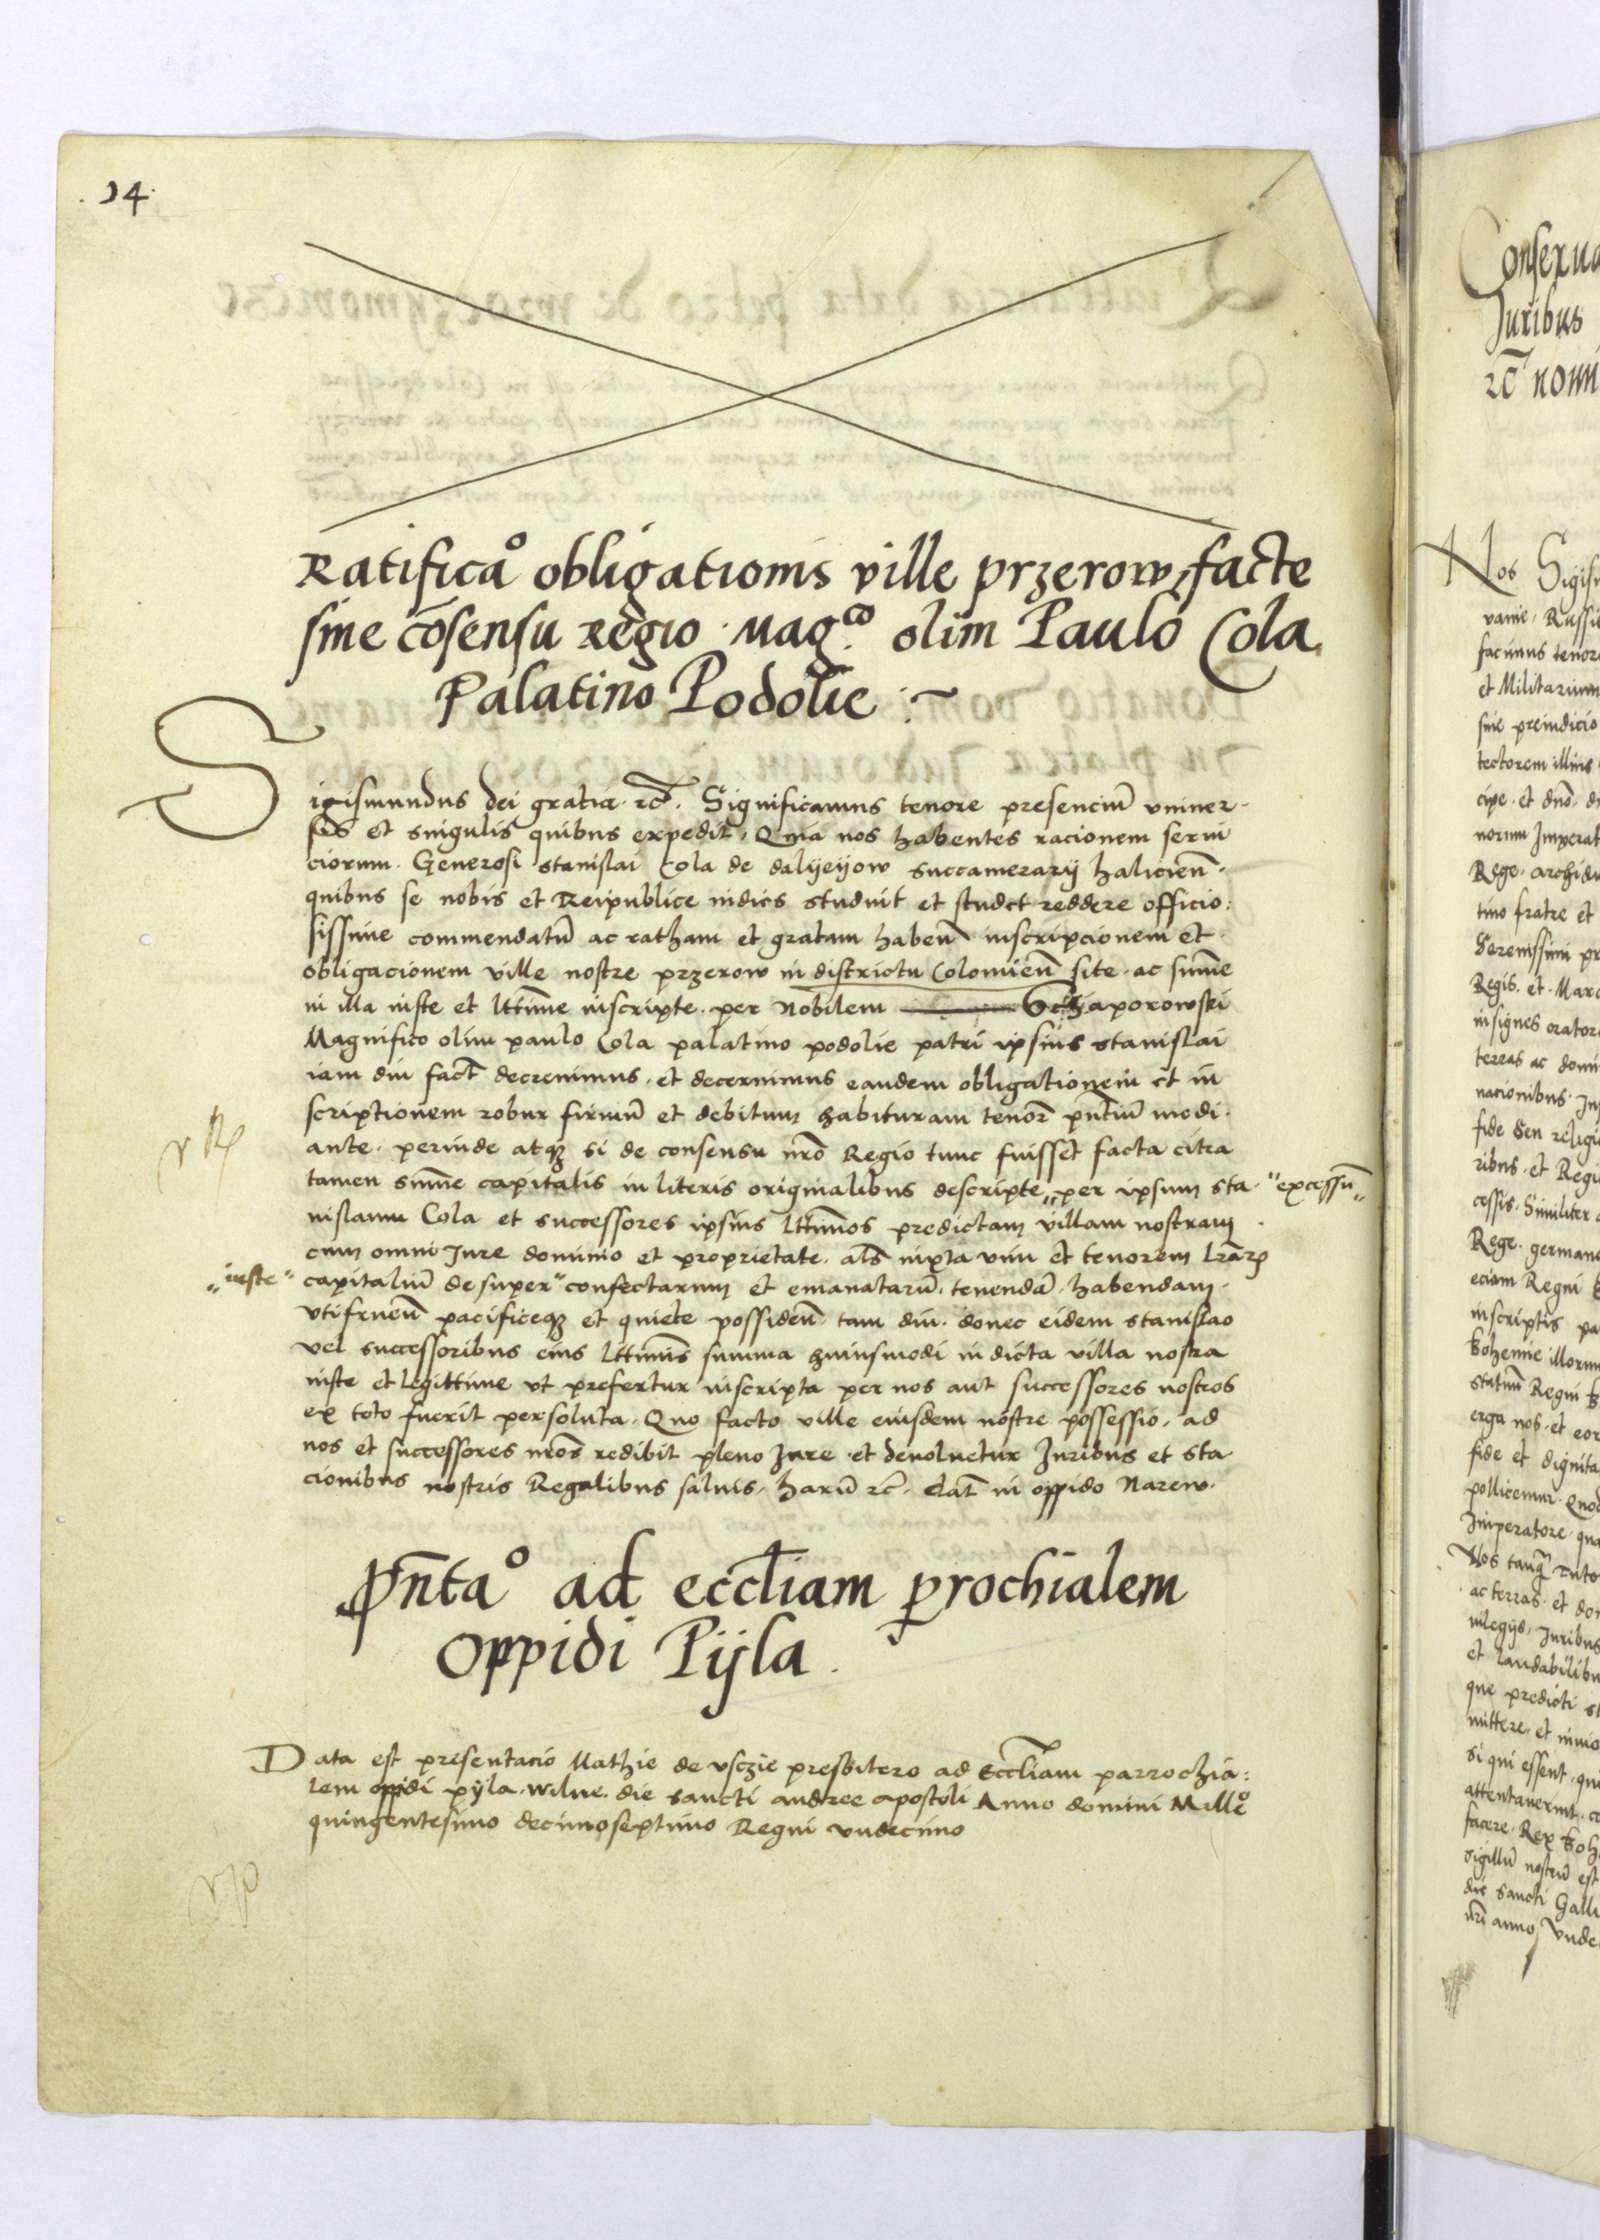 14
Ratifica° obligationis ville przerow facte
sine cōsensu Regio Mag.co olim Paulo Cola
Palatino Podolie
Sigismundus dei gratia rc̄. Significamus tenore presenciū vniuer-
sis et singulis quibus expedit, Quia nos habentes racionem serui
ciorum Generosi Stanislai Cola de dalyeyow succamerarij halicieñ.
quibus se nobis et Reipublice indies studuit et studet reddere officio:
sissime commendatū ac ratham et gratam habeñ inscripcionem et
obligacionem ville nostre przerow in districtu Colomieñ site ac sum̄e
in illa iuste et lttime inscripte per Nobilem Schaporowski
Magnifico olim paulo Cola palatino podolie patri ipsius stanislai
iam diu fact̄ decreuimus et decernimus eandem obligationem et in
scriptionem robur firmū et debitum habituram tenor̄ pn̄tiū medi-
ante perinde atq₃ si de consensu nr̄o Regio tunc fuisset facta citra
tamen sum̄e capitalis in literis originalibus descripte „ per ipsum sta- "excessū„
nislaum Cola et successores ipsius lttimos predictam villam nostram
cum omni Iure dominio et proprietate als̄ iuxta vim et tenorem lr̄arꝝ
„iuste" capitaliū desuper " confectarum et emanatarū tenendā habendam
vtifrueñ pacificeq₃ et quiete possideñ tam diu donec eidem stanislao
vel successoribus eius lttimis summa huiusmodi in dicta villa nostra
iuste et legittime vt prefertur inscripta per nos aut successores nostros
ex toto fuerit persoluta. Quo facto ville eiusdem nostre possessio ad
nos et successores nr̄os redibit pleno Iure et deuoluetur Iuribus et sta-
cionibus nostris Regalibus saluis, harū rc̄. dat̄ in oppido Narew.
Pn̄ta° ad eccl̄iam ꝑrochialem
Oppidi Pijla.
Data est presentacio Mathie de vsczie presbitero ad Eccl̄iam parrochia:
lem oppidi pyla. Wilne die sancti andree apostoli Anno domini Mill°
quingentesimo decimoseptimo Regni vndecimo
Conserua
Iuribus
rc̄ nomi
Nos Sigis
uanie, Russie
facimus tenore
et Militarium
sine preiudicio
tectorem illius
cipe et dn̄o
norum Imperat
Rege archidu
tino fratre et
Serenissimi pr
Regis et Marc
insignes orator
tereas ac domi
nacionibus
fide seu religi
ribus et Regi
cessis Similiter
Rege germano
eciam Regni
inscriptis pa
bohemie illorum
statum Regni
erga nos et eor
fide et dignita
pollicemur Quod
Imperatore qua
Nos tanq̄ tuto
ac terras et do
uilegijs, Iuribus
et laudabilibu
que predicti st
mittere et inuio
Si qui essent qui
attentauerint
facere Rex boh
sigillū nostrū est
die sancti Galli
nr̄i anno Vnde